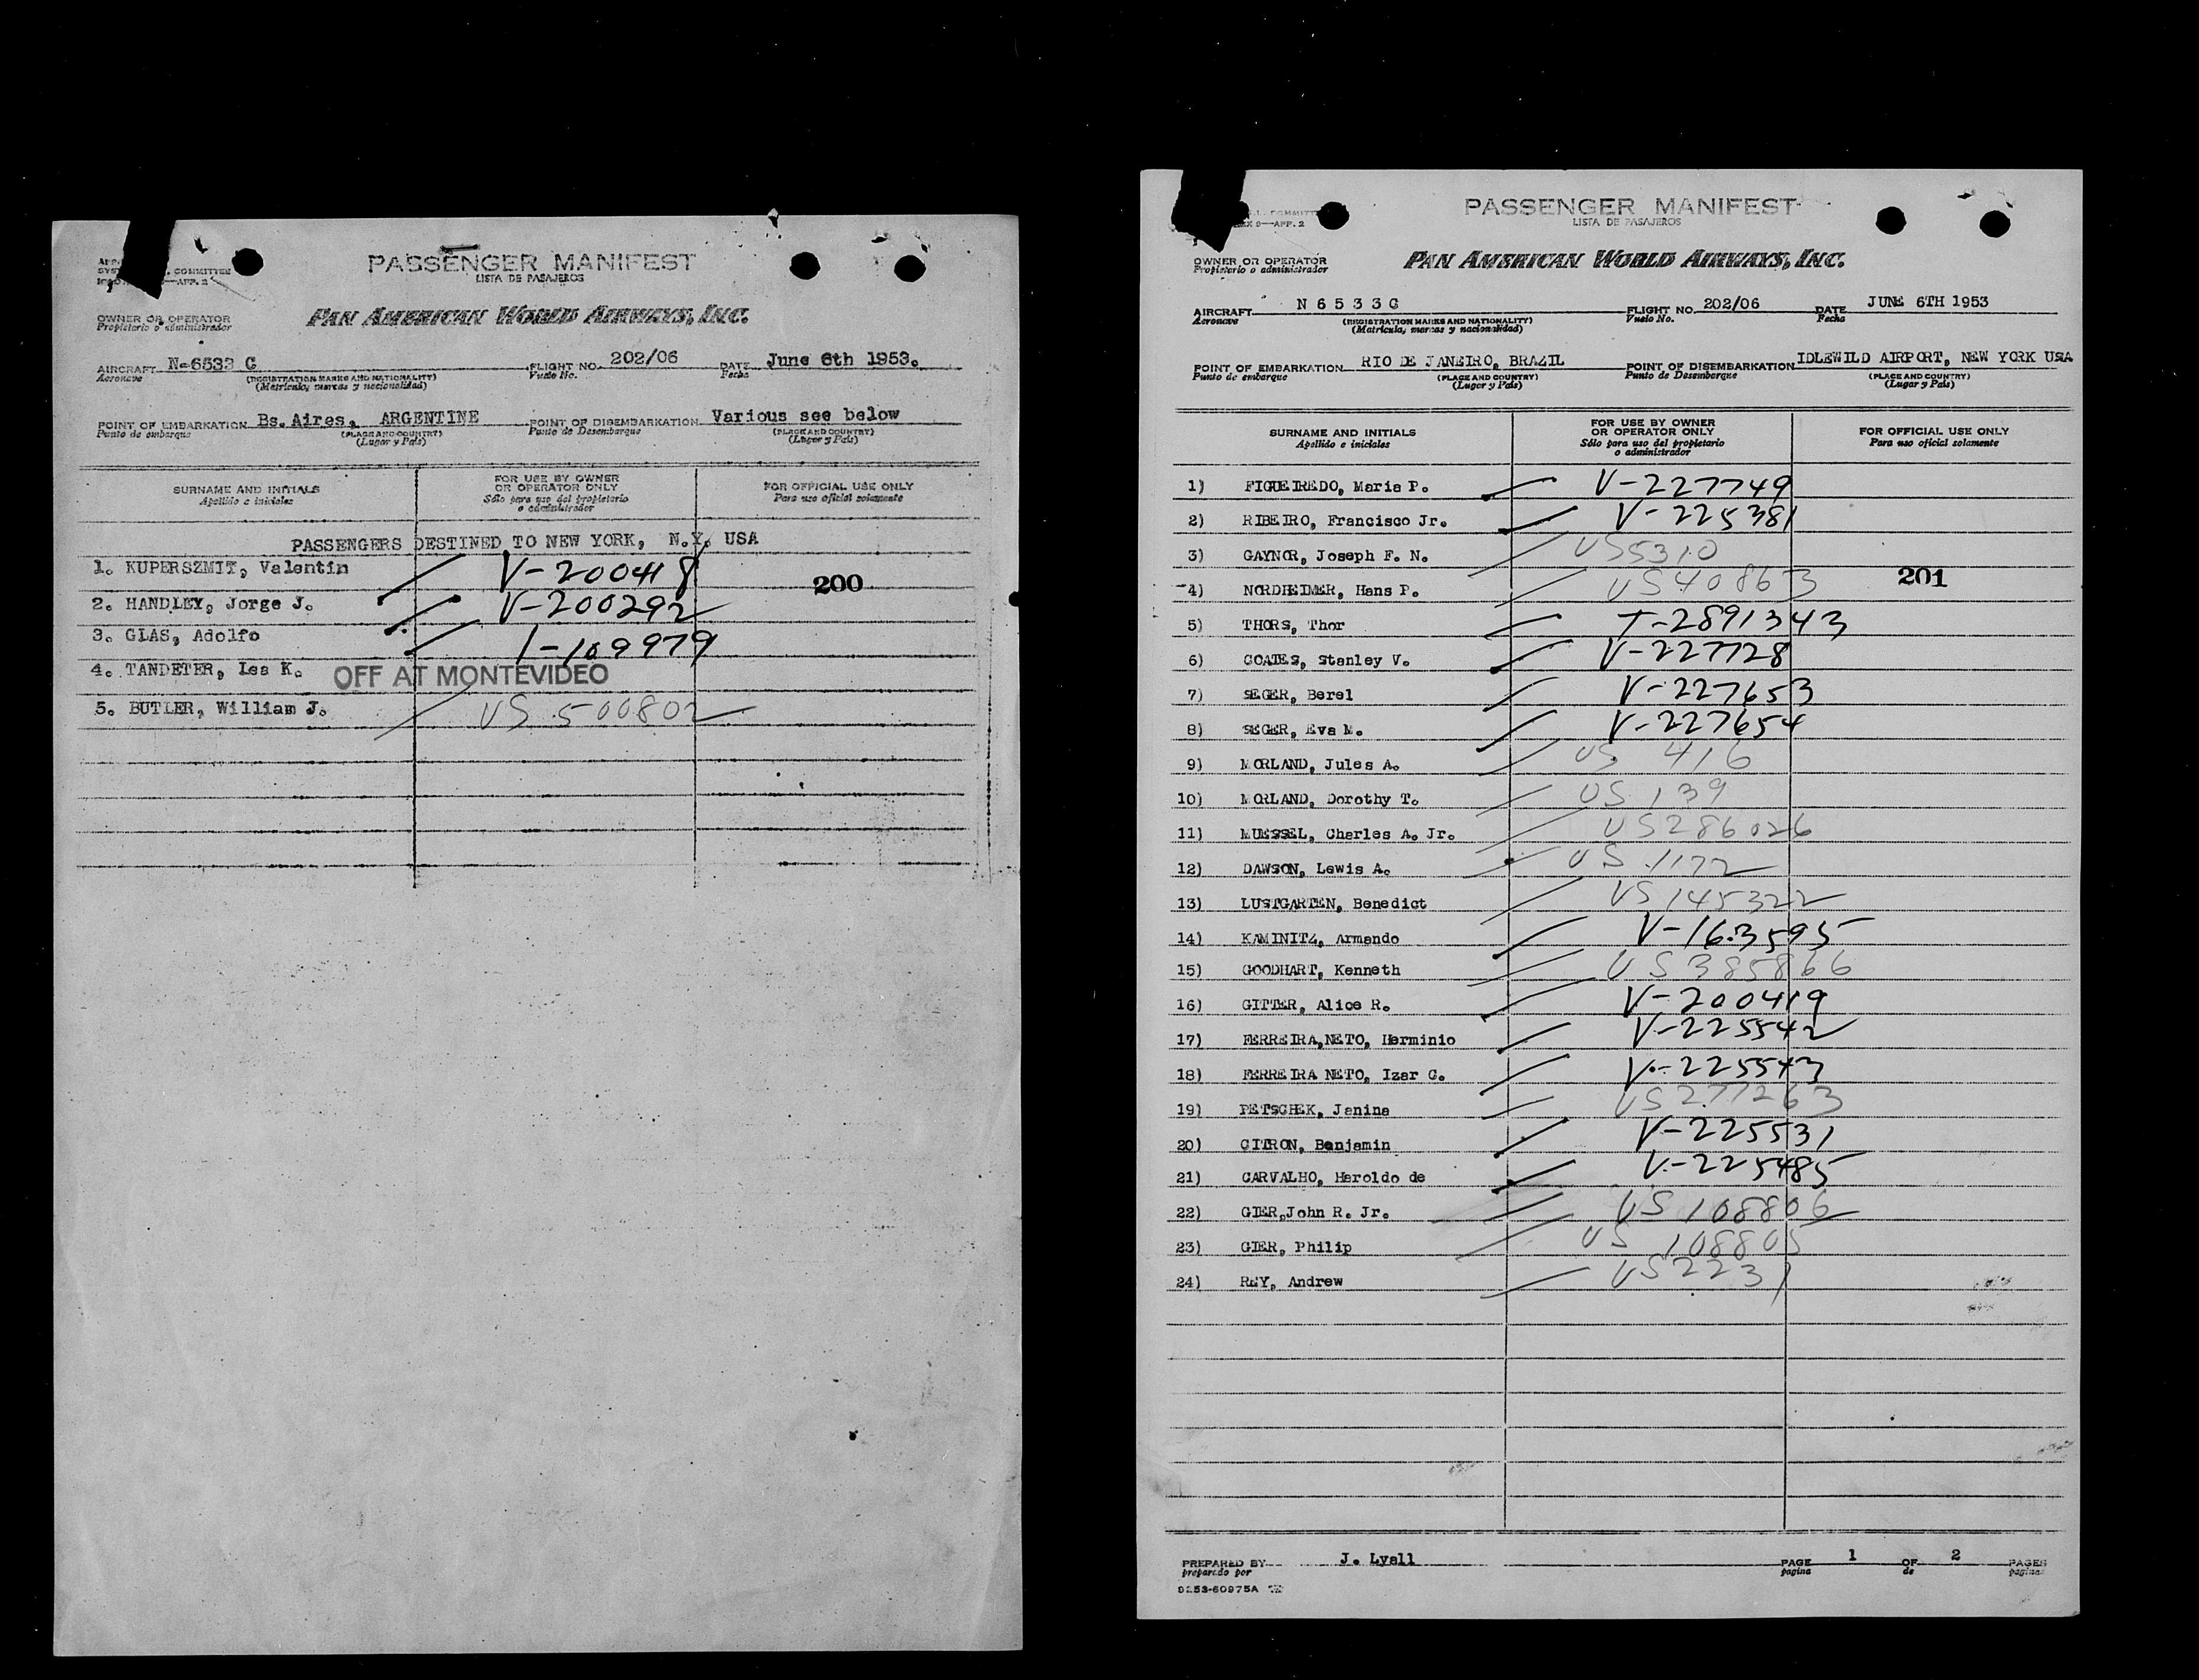 PASSENGER MANIFEST
LISTA DE PASAJEROS
COMMITTEE
APP. 2
OWNER OR OPERATOR
Propietario o administrador
PAN AMERICAN WORLD AIRWAYS, INC.
AIRCRAFT N-6533 C FLIGHT NO. 202/06 DATE June 6th 1953.
Aeronave (REGISTRATION MARKS AND NATIONALITY) Vuelo No. Fecha
(Matricula, marcas y nacionalidad)
POINT OF EMBARKATION Bs. Aires, ARGENTINE POINT OF DISEMBARKATION Various see below
Punto de embarque (PLACE AND COUNTRY) Punto de Desembarque (PLACE AND COUNTRY)
(Lugar y País) (Lugar y País)
SURNAME AND INITIALS FOR USE BY OWNER FOR OFFICIAL USE ONLY
Apellido e iniciales OR OPERATOR ONLY Para uso oficial solamente
Sólo para uso del propietario
o administrador
PASSENGERS DESTINED TO NEW YORK, N.Y. USA
1. KUPERSZMIT, Valentin V-200418
200
2. HANDLEY, Jorge J. V-200292
3. GLAS, Adolfo I-109979
4. TANDETER, Lea K. OFF AT MONTEVIDEO
5. BUTLER, William J. US 500802
PASSENGER MANIFEST
LISTA DE PASAJEROS
APP. 2
OWNER OR OPERATOR
Propietario o administrador
PAN AMERICAN WORLD AIRWAYS, INC.
AIRCRAFT N 6 5 3 3 C FLIGHT NO. 202/06 DATE JUNE 6TH 1953
Aeronave (REGISTRATION MARKS AND NATIONALITY) Vuelo No. Fecha
(Matricula, marcas y nacionalidad)
POINT OF EMBARKATION RIO DE JANEIRO, BRAZIL POINT OF DISEMBARKATION IDLEWILD AIRPORT, NEW YORK USA
Punto de embarque (PLACE AND COUNTRY) Punto de Desembarque (PLACE AND COUNTRY)
(Lugar y País) (Lugar y País)
SURNAME AND INITIALS FOR USE BY OWNER FOR OFFICIAL USE ONLY
Apellido e iniciales OR OPERATOR ONLY Para uso oficial solamente
Sólo para uso del propietario
o administrador
1) FIGUEIREDO, Maria P. V-227749
2) RIBEIRO, Francisco Jr. V-225381
3) GAYNOR, Joseph F. N. US5310
201
4) NORDHEIMER, Hans P. US40863
5) THORS, Thor T-2891343
6) COATES, Stanley V. V-227728
7) SEGER, Berel V-227653
8) SEGER, Eva M. V-227654
9) MORLAND, Jules A. US 416
10) MORLAND, Dorothy T. US 139
11) MUESSEL, Charles A. Jr. US286026
12) DAWSON, Lewis A. US 1172
13) LUSTGARTEN, Benedict US145322
14) KAMINITZ, Armando V-163595
15) GOODHART, Kenneth US385866
16) GITTER, Alice R. V-200419
17) FERREIRA,NETO, Herminio V-225542
18) FERREIRA NETO, Izar C. V-225543
19) PETSCHEK, Janina US277263
20) CITRON, Benjamin V-225531
21) CARVALHO, Haroldo de V-225485
22) GIER,John R. Jr. US 108806
23) GIER, Philip US 108805
24) REY, Andrew US2231
PREPARED BY J. Lyall PAGE 1 OF 2 PAGES
preparado por pagina de paginas
9253-60975A